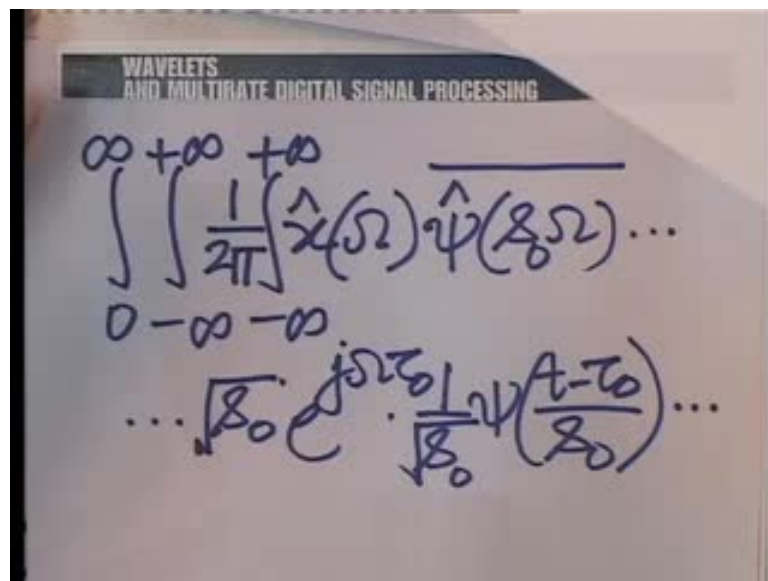 WAVELETS
AND MULTIRATE DIGITAL SIGNAL PROCESSING
∞ +∞ +∞
∫ ∫ 1/2π ∫ x̂(Ω) \overline{ψ̂(s₀Ω)} ...
0 -∞ -∞
... √s₀ e^{jΩτ₀} · 1/√s₀ ψ((t-τ₀)/s₀) ...